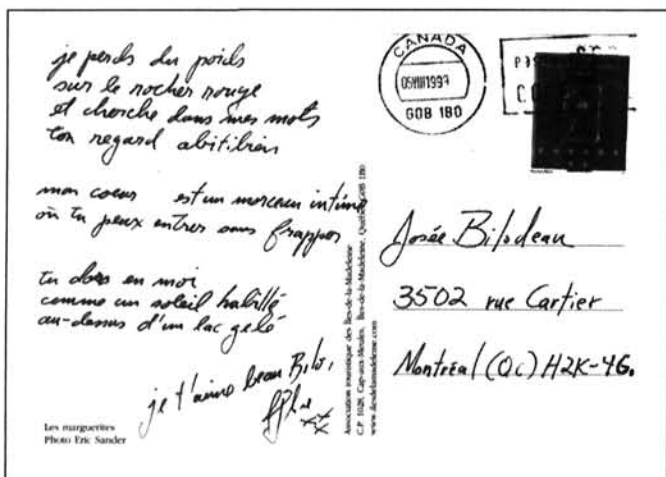 je perds du poids
sur le rocher rouge
et cherche dans mes mots
ton regard abitibien
mon coeur est un morceau intime
où tu peux entrer sans frapper
tu dors en moi
comme un soleil habillé
au-dessus d'un lac gelé
je t'aime beau Bilo,
xxx
Les marguerites
Photo Eric Sander
Association touristique des Îles-de-la-Madeleine
C.P. 1028, Cap-aux-Meules, Îles-de-la-Madeleine, Québec, G0B 1B0
www.ilesdelamadeleine.com
CANADA
1997
G0B 1B0
Josée Bilodeau
3502 rue Cartier
Montréal (Qc) H2K-4G.